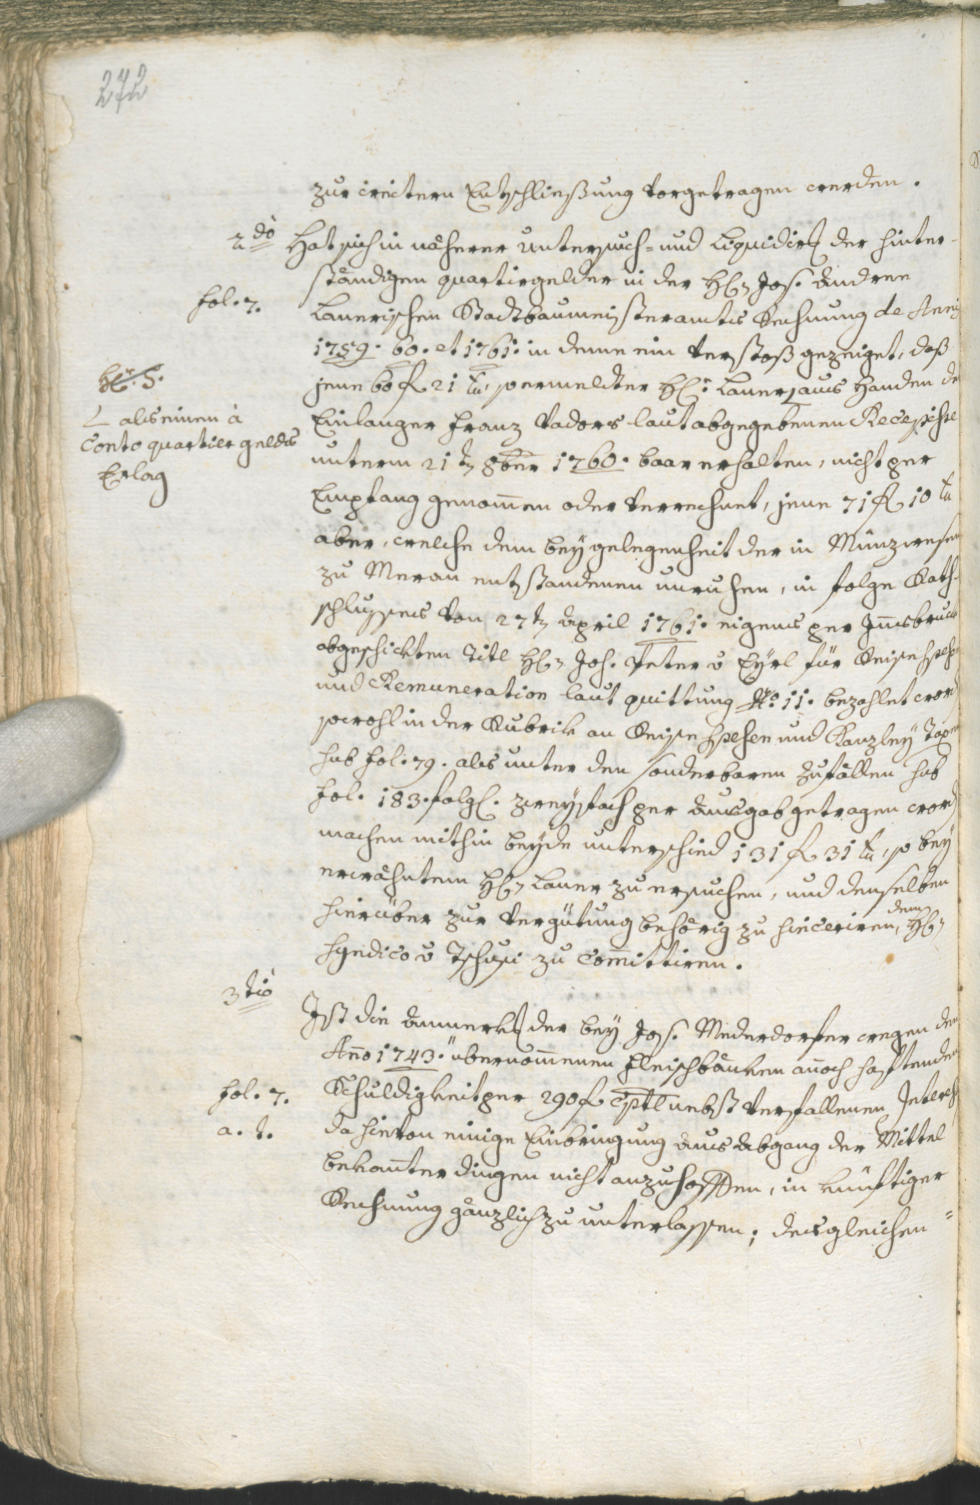 272
zur weitern Entschließung vorgetragen werden.
2do Hat sich in näherer untersuch- und Liquidirg der hinter-
ständigen quartirgelder in der Hr Jos. Andree
fol. 7.
Lanerischen Stadtbaumeisteramts Rechnung de Annis
1759. 60. et 1761. in deme ein Verstoß gezeiget, daß
jene 60 f 21 kr, so vermeldter Hr: Laner, aus Handen des
als einen à
Conto quartier gelds
Erlag
Einlanger Franz Vadors laut abgegebenen Recepisse
unterm 21ten 8ber 1760. baar erhalten, nicht per
Empfang genommen oder verrechnet, jene 71 f 10 kr
aber, welche dem bey gelegenheit der in Münzwesen
zu Meran entstandenen unruhen, in folge Rath-
schlusses von 27ten April 1761. eigens per Innsbruck
abgeschickten Titl Hr Joh. Peter v Eyrl für Reisespesen
und Remuneration laut quittung No: 11. bezahlet word
sowohl in der Rubrik an Reise Spesen und Kanzley Taxen
sub fol. 79. als unter den sonderbaren Zufällen sub
fol. 183. folgl. zweyfach per Ausgab getragen word
machen mithin beyde unterschied 131 f 31 kr, so bey
erwähntem Hr Laner zu ersuchen, und denselben
hierüber zur Vergütung behörig zu sinceriren, dem Hr
Syndico v Tschusi zu Committiren.
3tiò
Ist die Anmerkg der bey Jos. Niederdorfer wegen der
Ano 1743. übernommenen Fleischbänken annoch haftenden
fol. 7.
Schuldigkeit per 290 f Cptl nebst verfallenen Interesse
a. t.
da hievon einige Einbringung aus Abgang der Mittel
bekanter dingen nicht anzuhoffen, in künftiger
Rechnung gänzlich zu unterlassen; desgleichen =